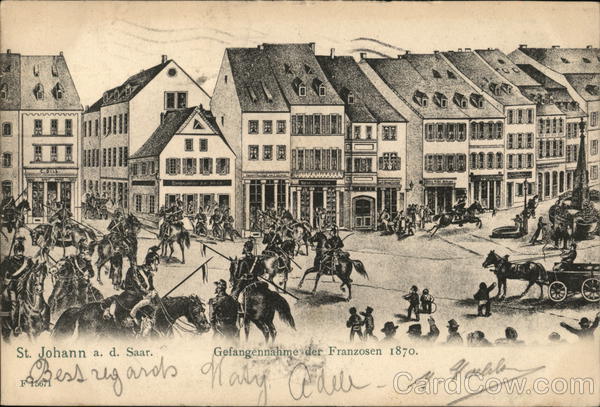 St. Johann a. d. Saar. Gefangennahme der Franzosen 1870.
F 15671
Best regards
CardCow.com